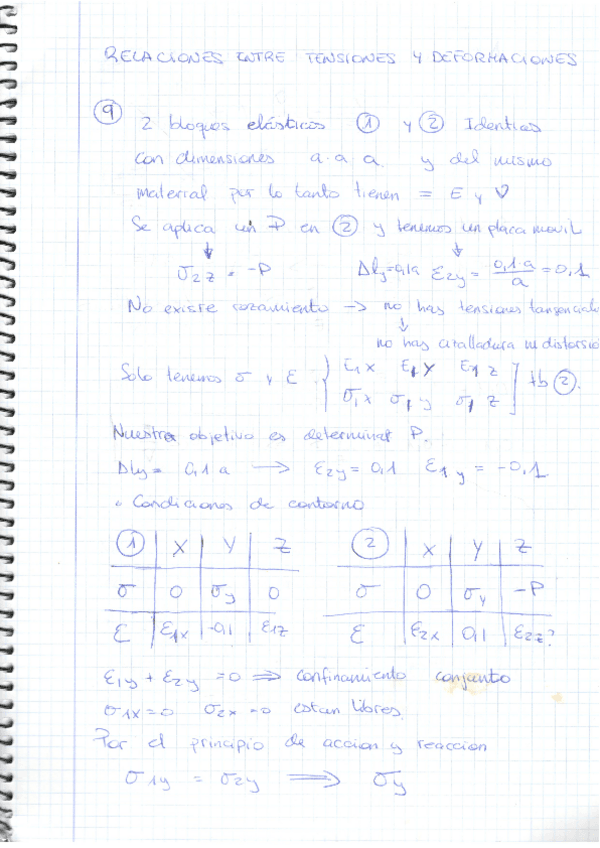 RELACIONES ENTRE TENSIONES Y DEFORMACIONES
9
2 bloques elásticos ① y ② Identicos
con dimensiones a·a·a y del mismo
material por lo tanto tienen = E y ν
Se aplica un P en ② y tenemos un placa movil
↓ ↓
σ2z = -P Δly=0,1a ε2y = 0,1·a/a = 0,1
No existe rozamiento → no hay tensiones tangenciale
↓
no hay cizalladura ni distorsio
Solo tenemos σ y ε { ε1x ε1y ε1z
σ1x σ1y σ1z ] tb ②.
Nuestro objetivo es determinar P.
Δly = 0,1 a → ε2y = 0,1 ε1y = -0,1
· Condiciones de contorno
① | X | Y | Z ② | X | Y | Z
σ | 0 | σy | 0 σ | 0 | σy | -P
ε | ε1x | -0,1 | ε1z ε | ε2x | 0,1 | ε2z?
ε1y + ε2y = 0 ⟹ confinamiento conjunto
σ1x = 0 σ2x = 0 estan libres.
Por el principio de accion y reaccion
σ1y = σ2y ⟹ σy